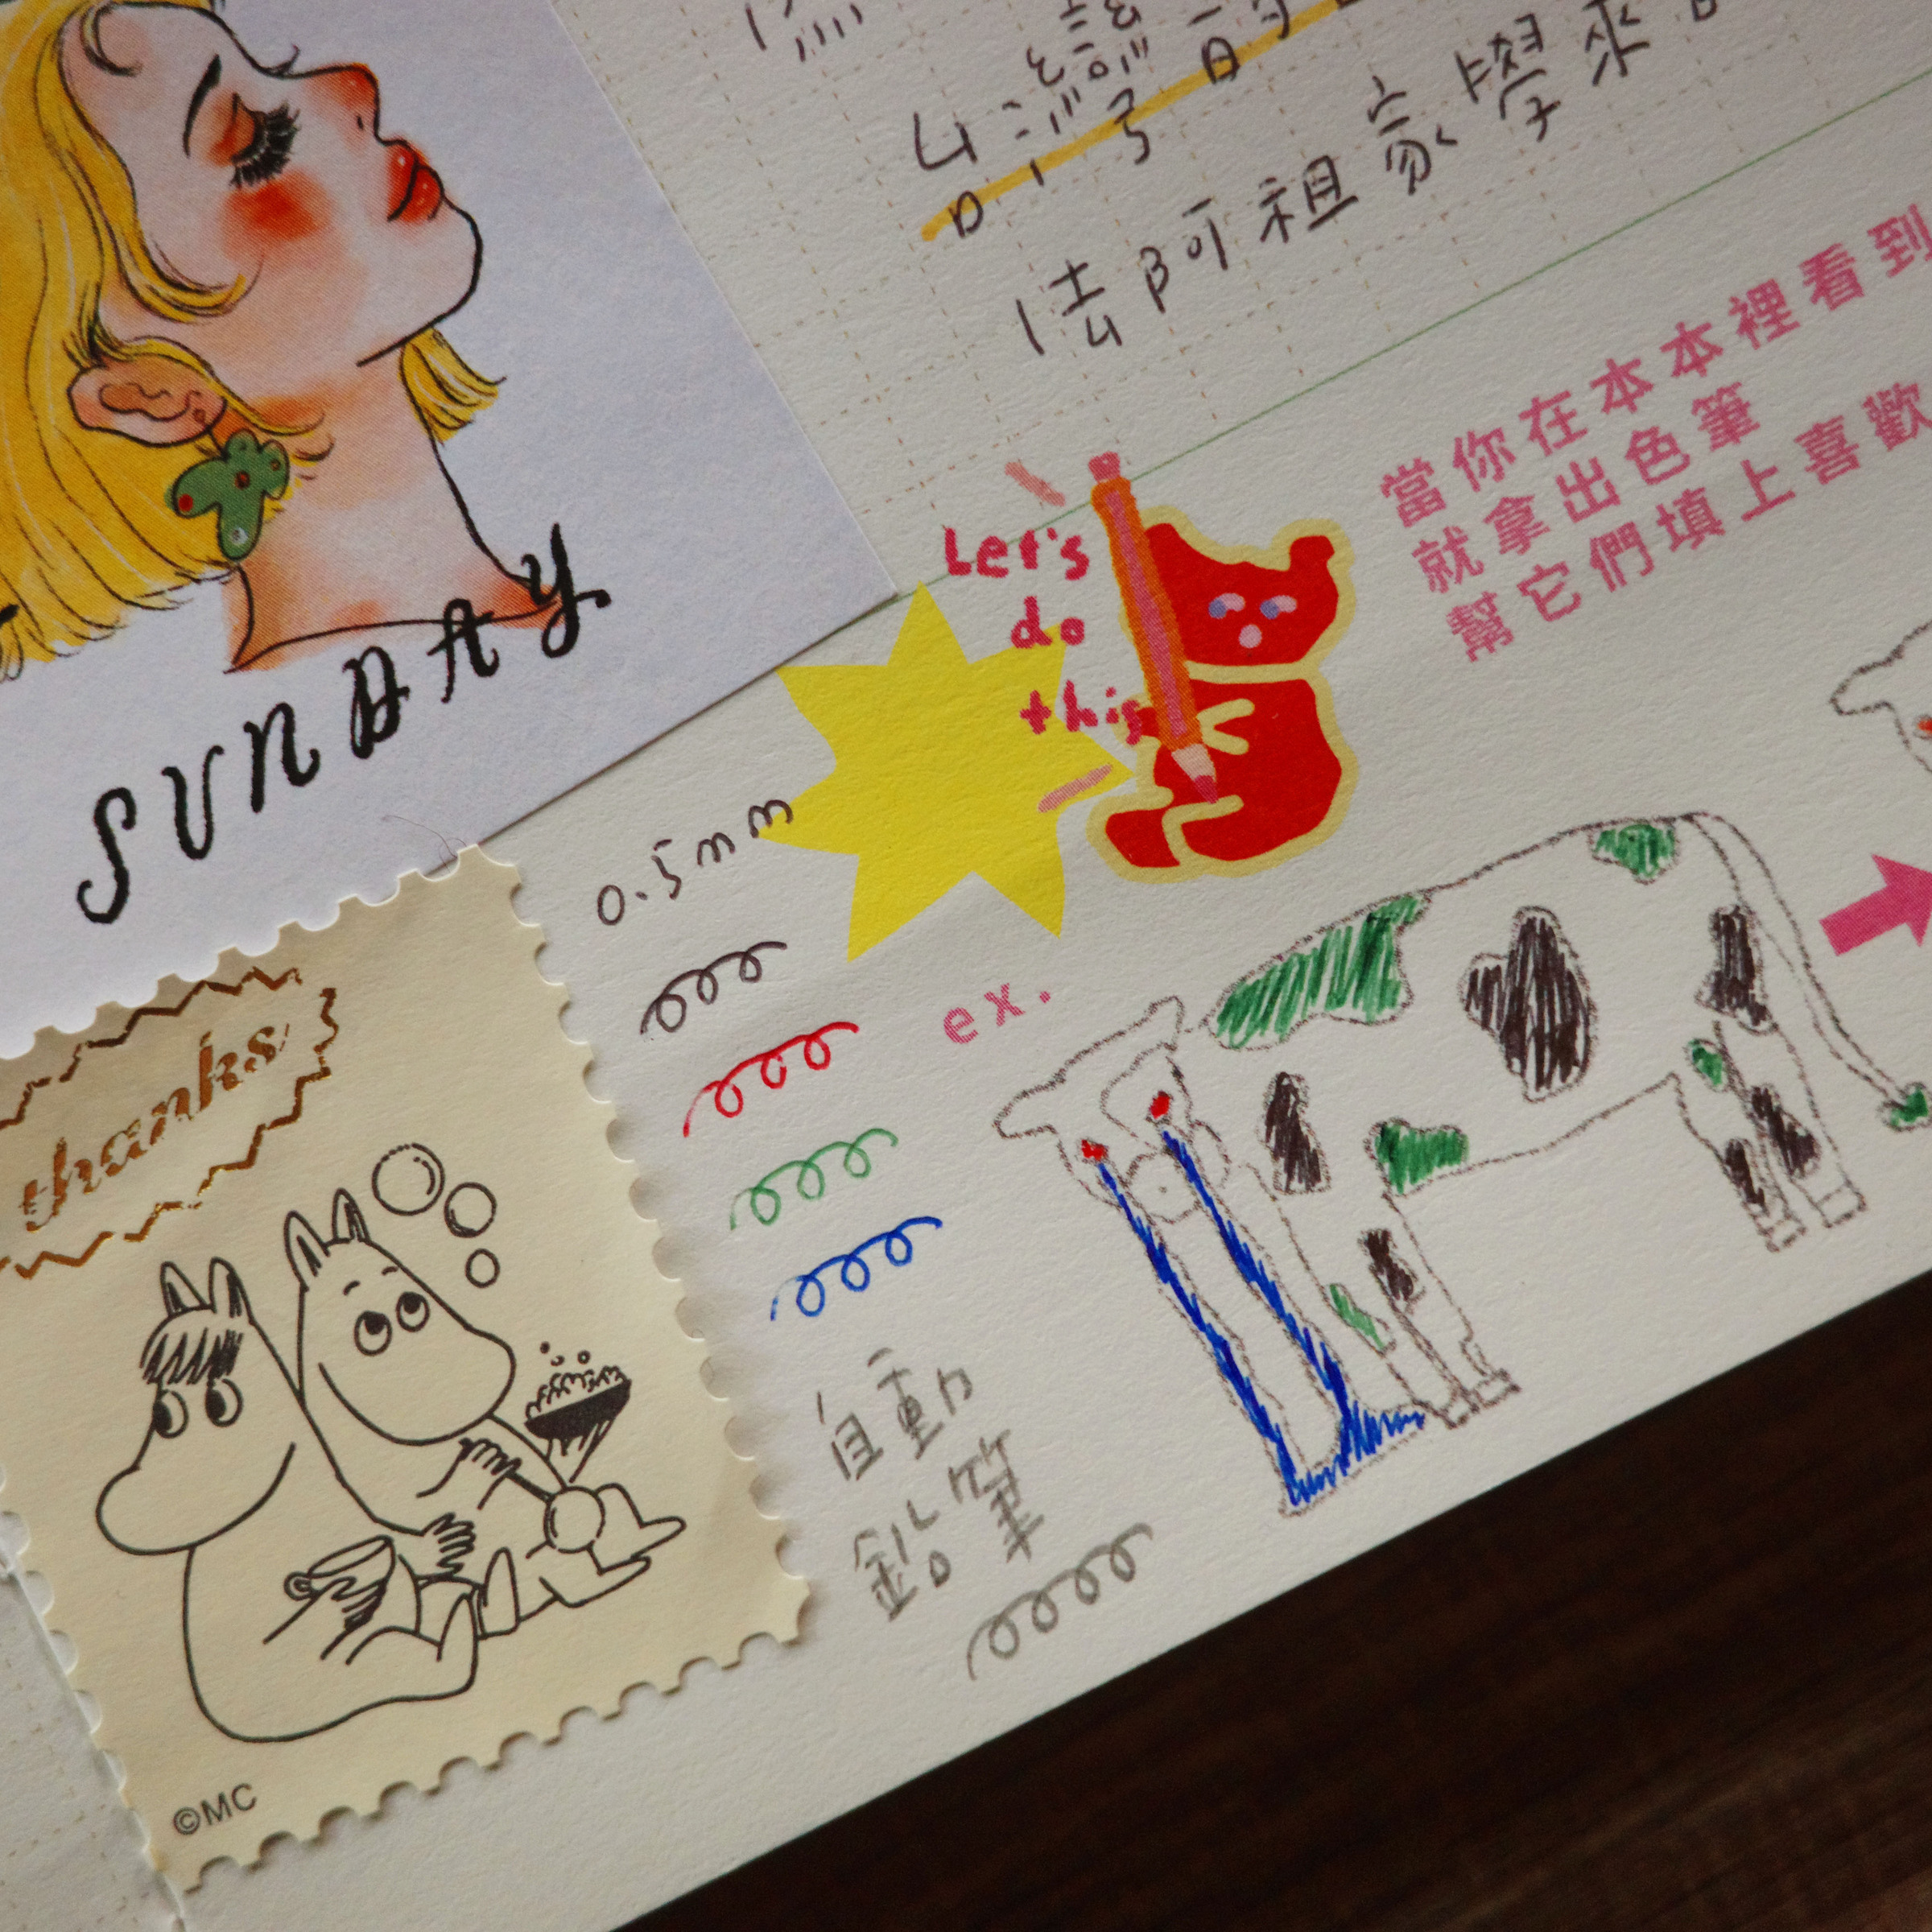 台灣
佉阿祖家學來
SUNDAY
Let's
do
this
當你在本本裡看到
就拿出色筆
幫它們填上喜歡
0.5mm
ex.
thanks
自動
鉛筆
©MC